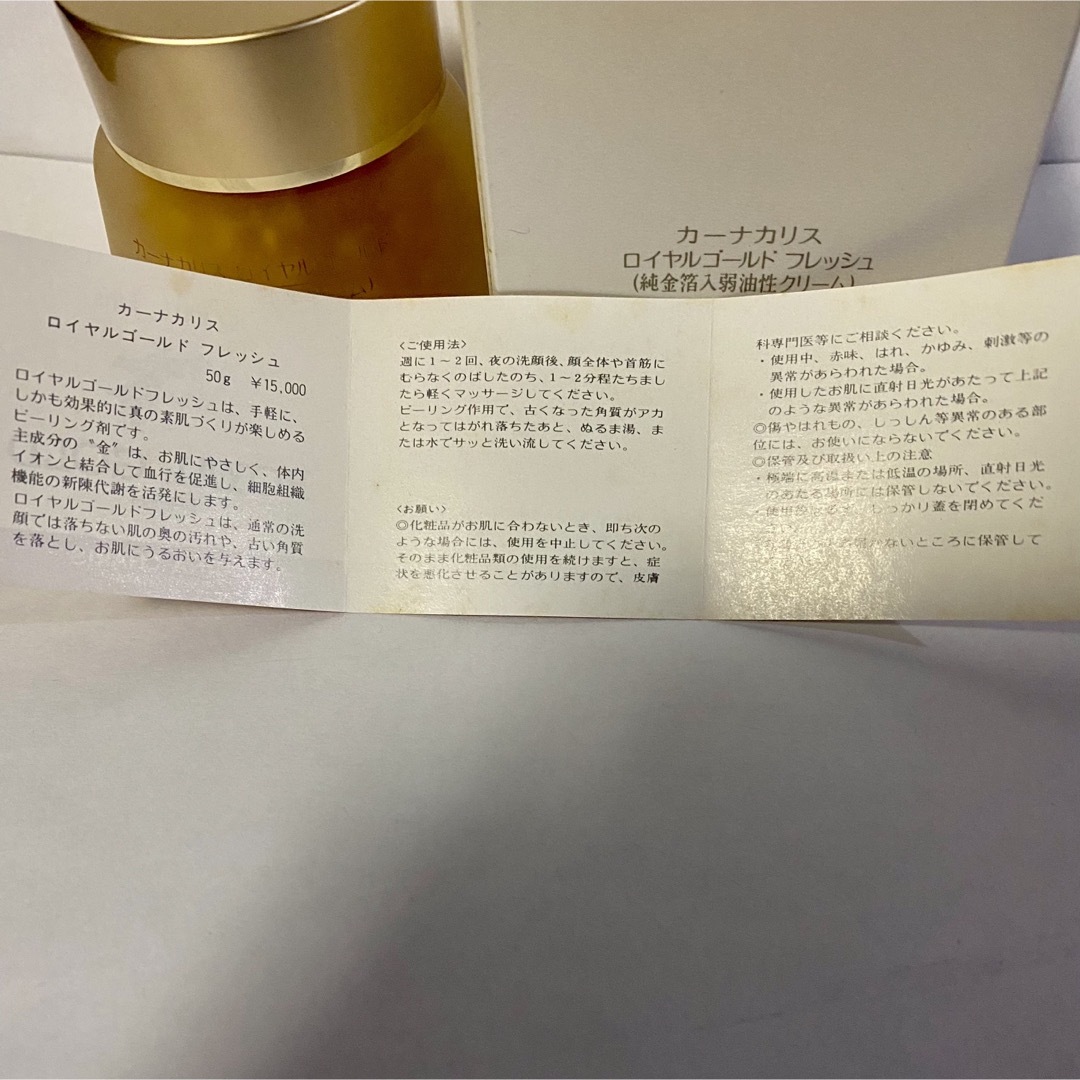 カーナカリス
ロイヤルゴールド フレッシュ
(純金箔入弱油性クリーム)
カーナカリス
ロイヤルゴールド フレッシュ
50g ¥15,000
ロイヤルゴールドフレッシュは、手軽に、
しかも効果的に真の素肌づくりが楽しめる
ピーリング剤です。
主成分の〝金〞は、お肌にやさしく、体内
イオンと結合して血行を促進し、細胞組織
機能の新陳代謝を活発にします。
ロイヤルゴールドフレッシュは、通常の洗
顔では落ちない肌の奥の汚れや、古い角質
を落とし、お肌にうるおいを与えます。
〈ご使用法〉
週に1〜2回、夜の洗顔後、顔全体や首筋に
むらなくのばしたのち、1〜2分程たちまし
たら軽くマッサージしてください。
ピーリング作用で、古くなった角質がアカ
となってはがれ落ちたあと、ぬるま湯、ま
たは水でサッと洗い流してください。
〈お願い〉
◎化粧品がお肌に合わないとき、即ち次の
ような場合には、使用を中止してください。
そのまま化粧品類の使用を続けますと、症
状を悪化させることがありますので、皮膚
科専門医等にご相談ください。
・使用中、赤味、はれ、かゆみ、刺激等の
異常があらわれた場合。
・使用したお肌に直射日光があたって上記
のような異常があらわれた場合。
◎傷やはれもの、しっしん等異常のある部
位には、お使いにならないでください。
◎保管及び取扱い上の注意
・極端に高温または低温の場所、直射日光
のあたる場所には保管しないでください。
しっかり蓋を閉めてくだ
ないところに保管して